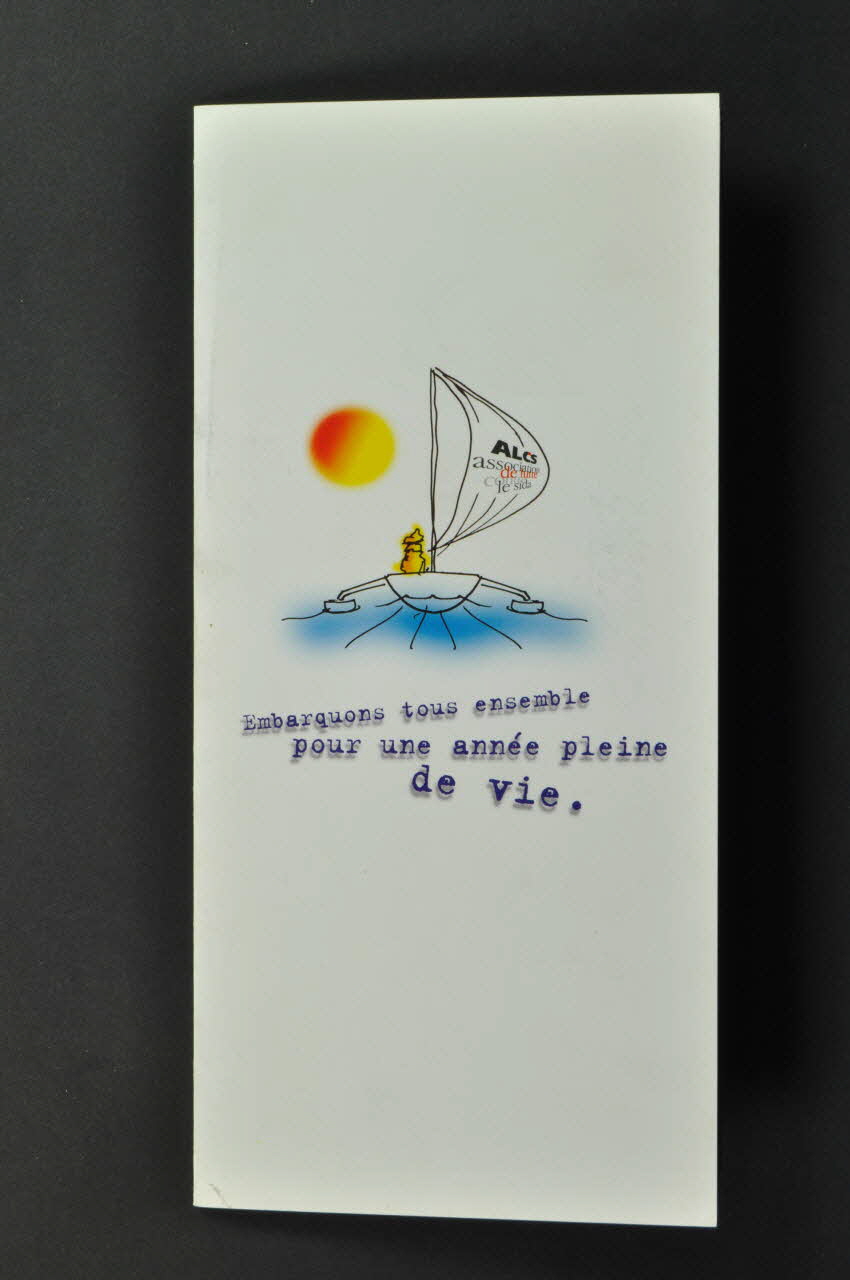 ALCS
association
de lutte
contre
le sida
Embarquons tous ensemble
pour une année pleine
de vie.